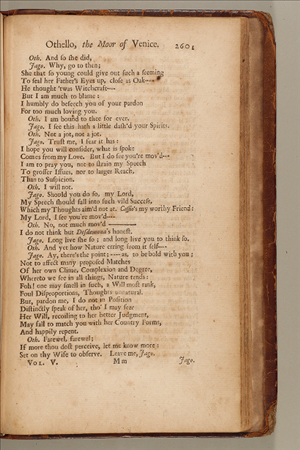 Othello, the Moor of Venice. 2601
Oth. And so she did,
Jago. Why, go to then;
She that so young could give out such a seeming
To seal her Father's Eyes up, close as Oak---
He thought 'twas Witchcraft---
But I am much to blame:
I humbly do beseech you of your pardon
For too much loving you.
Oth. I am bound to thee for ever.
Jago. I see this hath a little dash'd your Spirits.
Oth. Not a jot, not a jot.
Jago. Trust me, I fear it has:
I hope you will consider, what is spoke
Comes from my Love. But I do see you're mov'd---
I am to pray you, not to strain my Speech
To grosser Issues, nor to larger Reach,
Than to Suspicion.
Oth. I will not.
Jago. Should you do so, my Lord,
My Speech should fall into such vild Success,
Which my Thoughts aim'd not at. Cassio's my worthy Friend:
My Lord, I see you're mov'd----
Oth. No, not much mov'd
I do not think but Desdemona's honest.
Jago. Long live she so; and long live you to think so.
Oth. And yet how Nature erring from it self---
Jago. Ay, there's the point; ---- as, to be bold with you;
Not to affect many proposed Matches
Of her own Clime, Complexion and Degree,
Whereto we see in all things, Nature tends:
Foh! one may smell in such, a Will most rank,
Foul Disproportions, Thoughts unnatural.
But, pardon me, I do not in Position
Distinctly speak of her, tho' I may fear
Her Will, recoiling to her better Judgment,
May fall to match you with her Country Forms,
And happily repent.
Oth. Farewel, farewel;
If more thou dost perceive, let me know more:
Set on thy Wife to observe. Leave me, Jago.
Vol. V. M m Jago.